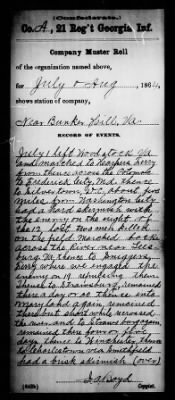 (Confederate.)
Co. A, 21 Reg't Georgia Inf.
Company Muster Roll
of the organization named above,
for July & Aug, 1864,
shows station of company,
Near Bunker Hill, Va.
RECORD OF EVENTS.
July 1 left Woodstock Va
and marched to Harpers Ferry
from thence across the Potomac
to Frederick City, Md. thence
to
miles from Washington City
had a hard skirmish with
the enemy on the night of
the 12, lost two men killed
on the field marched back
across the River near Lees
burg Va thence to Sniggers
Ferry where we engaged the
enemy on 19 repulsing them
thence to Strausburg, remained
there a day or so thence into
Maryland again remained
there but short while recrossed
the river and to Straus burg again
remained this time for a few
days thence to Winchester, thence
to Charlestown via Smithfield
had a brisk skirmish (over)
J.G. Boyd
Copyist.